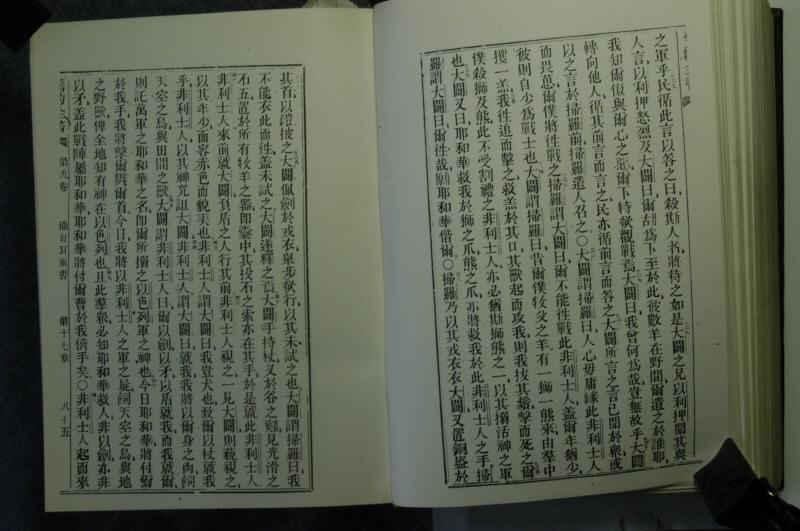 之軍乎民循此言以答之曰殺斯人者將待之如是大闢之兄以利押聞其與
人言以利押怒烈及大闢曰爾胡爲下至於此彼數羊在野間爾遺之於誰耶
我知爾傲與爾心之惡爾下特欲觀戰焉大闢曰我曾何爲哉豈無故乎大闢
轉向他人循其前言而言之民亦循前言而答之大闢所言之言已聞於衆或
以之言於掃羅前掃羅遣人召之〇大闢謂掃羅曰人心毋庸緣此非利士人
而畏葸爾僕將往戰之掃羅謂大闢曰爾不能往戰此非利士人蓋爾年猶少
彼則自少爲戰士也大闢謂掃羅曰昔爾僕牧父之羊有一獅一熊來由羣中
攫一羔我往追而擊之救羔於其口其獸起而攻我則我拔其鬚擊而死之爾
僕殺獅及熊此不受割禮之非利士人亦必猶斯獅熊之一以其搦活神之軍
也大闢又曰耶和華救我於獅之爪熊之爪亦將救我於此非利士人之手掃
羅謂大闢曰爾往哉願耶和華偕爾〇掃羅乃以其戎衣衣大闢又置銅盔於
其首以鎧披之大闢佩劍於戎衣舉步欲行以其未試之也大闢謂掃羅曰我
不能衣此而往蓋未試之大闢遂釋之焉大闢手持杖又於谷之溪見光滑之
石五置於所有牧羊之器卽囊中其投石之索亦在其手於是就此非利士人
非利士人來前就大闢負盾之人行其前非利士人視之一見大闢則藐視之
以其年少面容赤色而貌美也非利士人謂大闢曰我豈犬也致爾以杖就我
乎非利士人以其神咒詛大闢非利士人謂大闢曰就我我將以爾身之肉飼
天空之鳥與田間之獸大闢謂非利士人曰爾以劍以矛以盾就我而我就爾
則託萬軍之耶和華之名卽爾所搦之以色列軍之神也今日耶和華將付爾
於我手我將擊爾戮爾首今日我將以非利士人之軍之屍飼天空之鳥與地
之野獸俾全地知有神在以色列也且此羣衆必知耶和華救人非以劍亦非
以矛蓋此戰陣屬耶和華耶和華將付爾曹於我儕手矣〇非利士人起而來
第九卷 撒母耳前書 第十七章 八十五